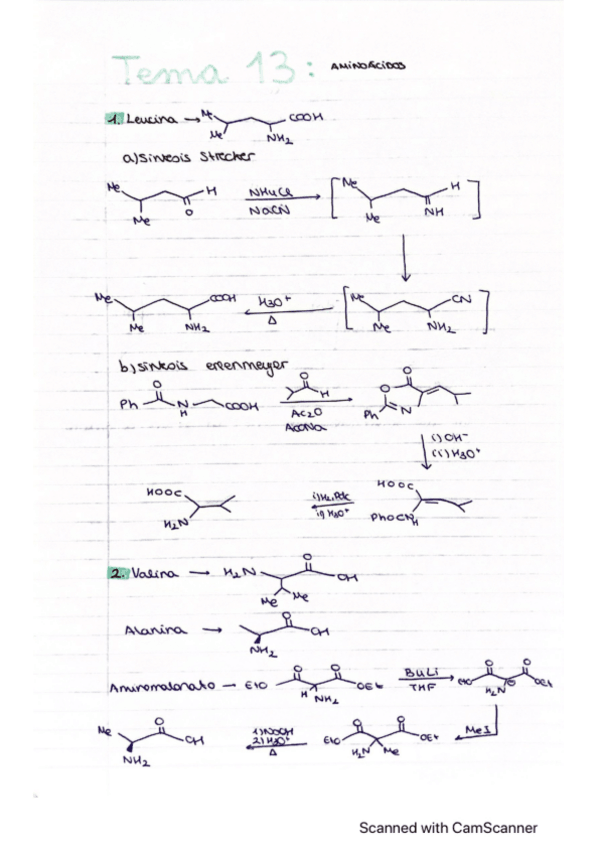 Tema 13: AMINOÁCIDOS
1. Leucina → Me Me COOH NH2
a) Síntesis Strecker
Me Me H O NH4Cl NaCN Me Me H NH
Me Me COOH NH2 H3O+ Δ Me Me CN NH2
b) síntesis erlenmeyer
Ph O N H COOH O H Ac2O AcONa O O Ph N
i) OH-
ii) H3O+
HOOC H2N i) H2, Pdc ii) H3O+ HOOC PhOCN H
2. Valina → H2N O OH Me Me
Alanina → O OH NH2
Aminomalonato - EtO O O OEt H NH2 BuLi THF EtO O O OEt H2N ⊖
MeI
Me O OH NH2 1) NaOH 2) H3O+ Δ EtO O O OEt H2N Me
Scanned with CamScanner